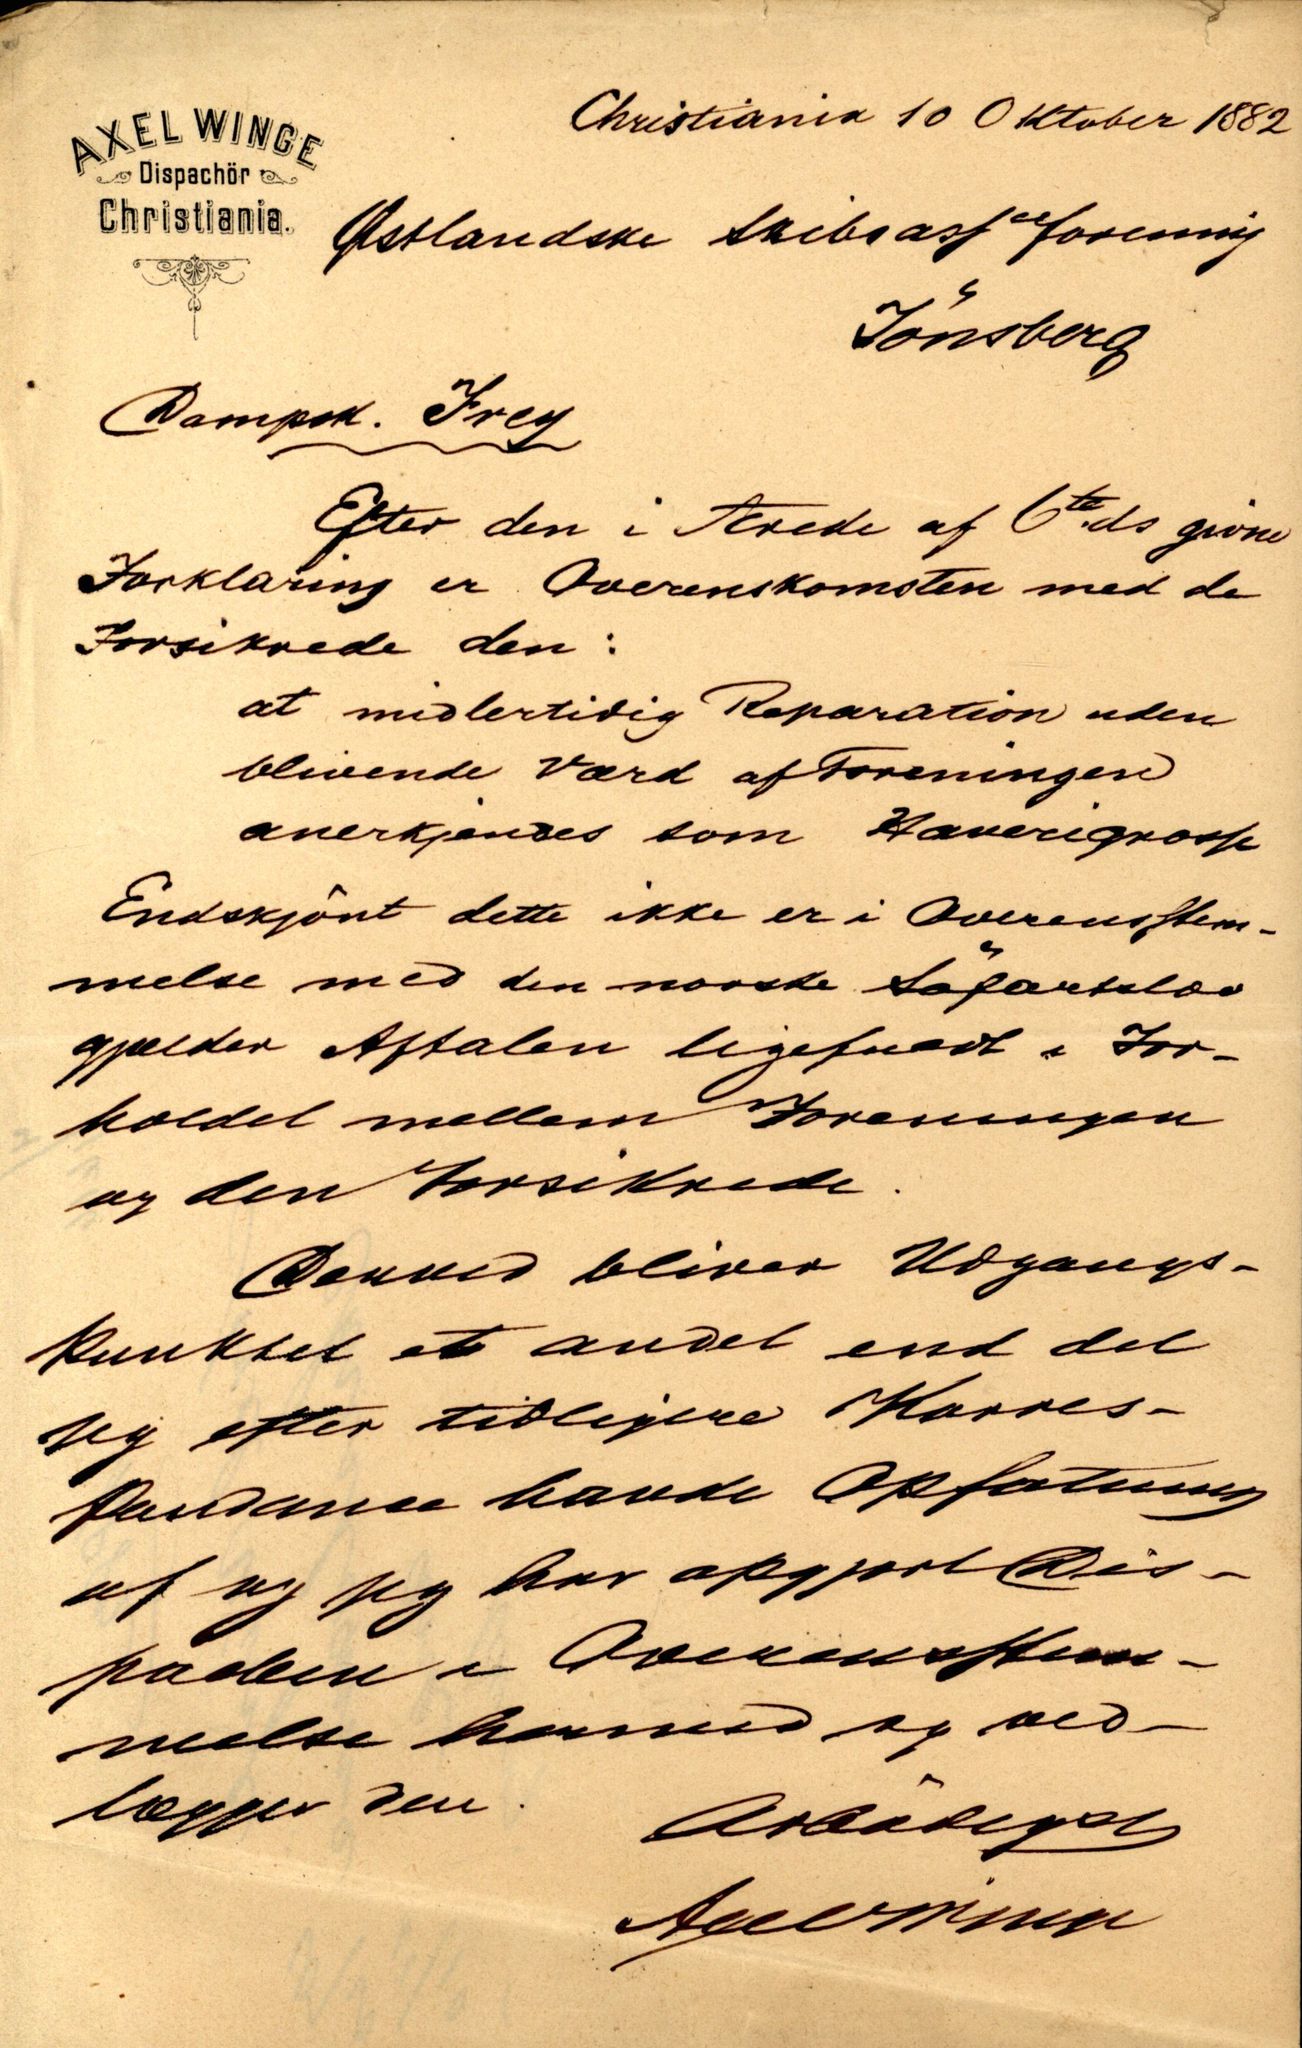 AXEL WINGE
Dispachör
Christiania.
Christiania 10 Oktober 1882
Østlandske Skibsassce forening
Tönsberg
Dampsk. Frey
Efter den i Ærede af 6te ds givne
Forklaring er Overenskomsten med de
Forsikrede den:
at midlertidig Reparation uden
blivende Værd af Foreningen
anerkjendes som Haverigrosse
Endskjönt dette ikke er i Overensstem-
melse med den norske Söfartslov
gjælder Aftalen ligefuldt i For-
holdet mellem Foreningen
og den Forsikrede.
Derved bliver Udgangs-
punktet et andet end det
jeg efter tidligere Korres-
pondance havde Opfatning
af og jeg har opgjort Dis-
pachen i Overensstem-
melse hermed og ved-
lægger den.
Ærbödigst
Axel Winge